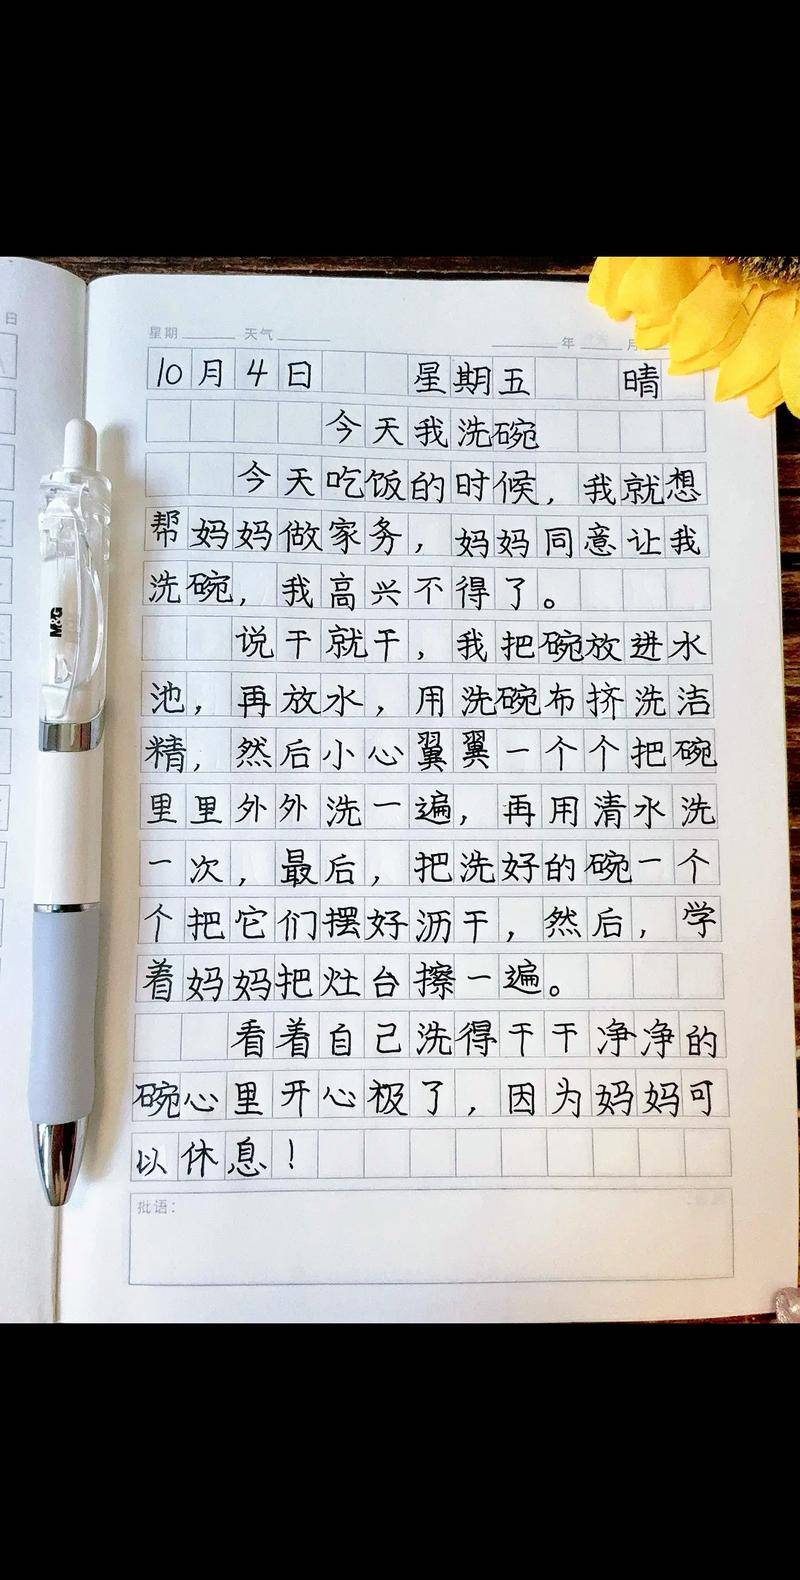 日
星期 天气 年 月
10月4日 星期五 晴
今天我洗碗
今天吃饭的时候，我就想
帮妈妈做家务，妈妈同意让我
洗碗，我高兴不得了。
说干就干，我把碗放进水
池，再放水，用洗碗布挤洗洁
精，然后小心翼翼一个个把碗
里里外外洗一遍，再用清水洗
一次，最后，把洗好的碗一个
个把它们摆好沥干，然后，学
着妈妈把灶台擦一遍。
看着自己洗得干干净净的
碗心里开心极了，因为妈妈可
以休息！
批语：
M&G